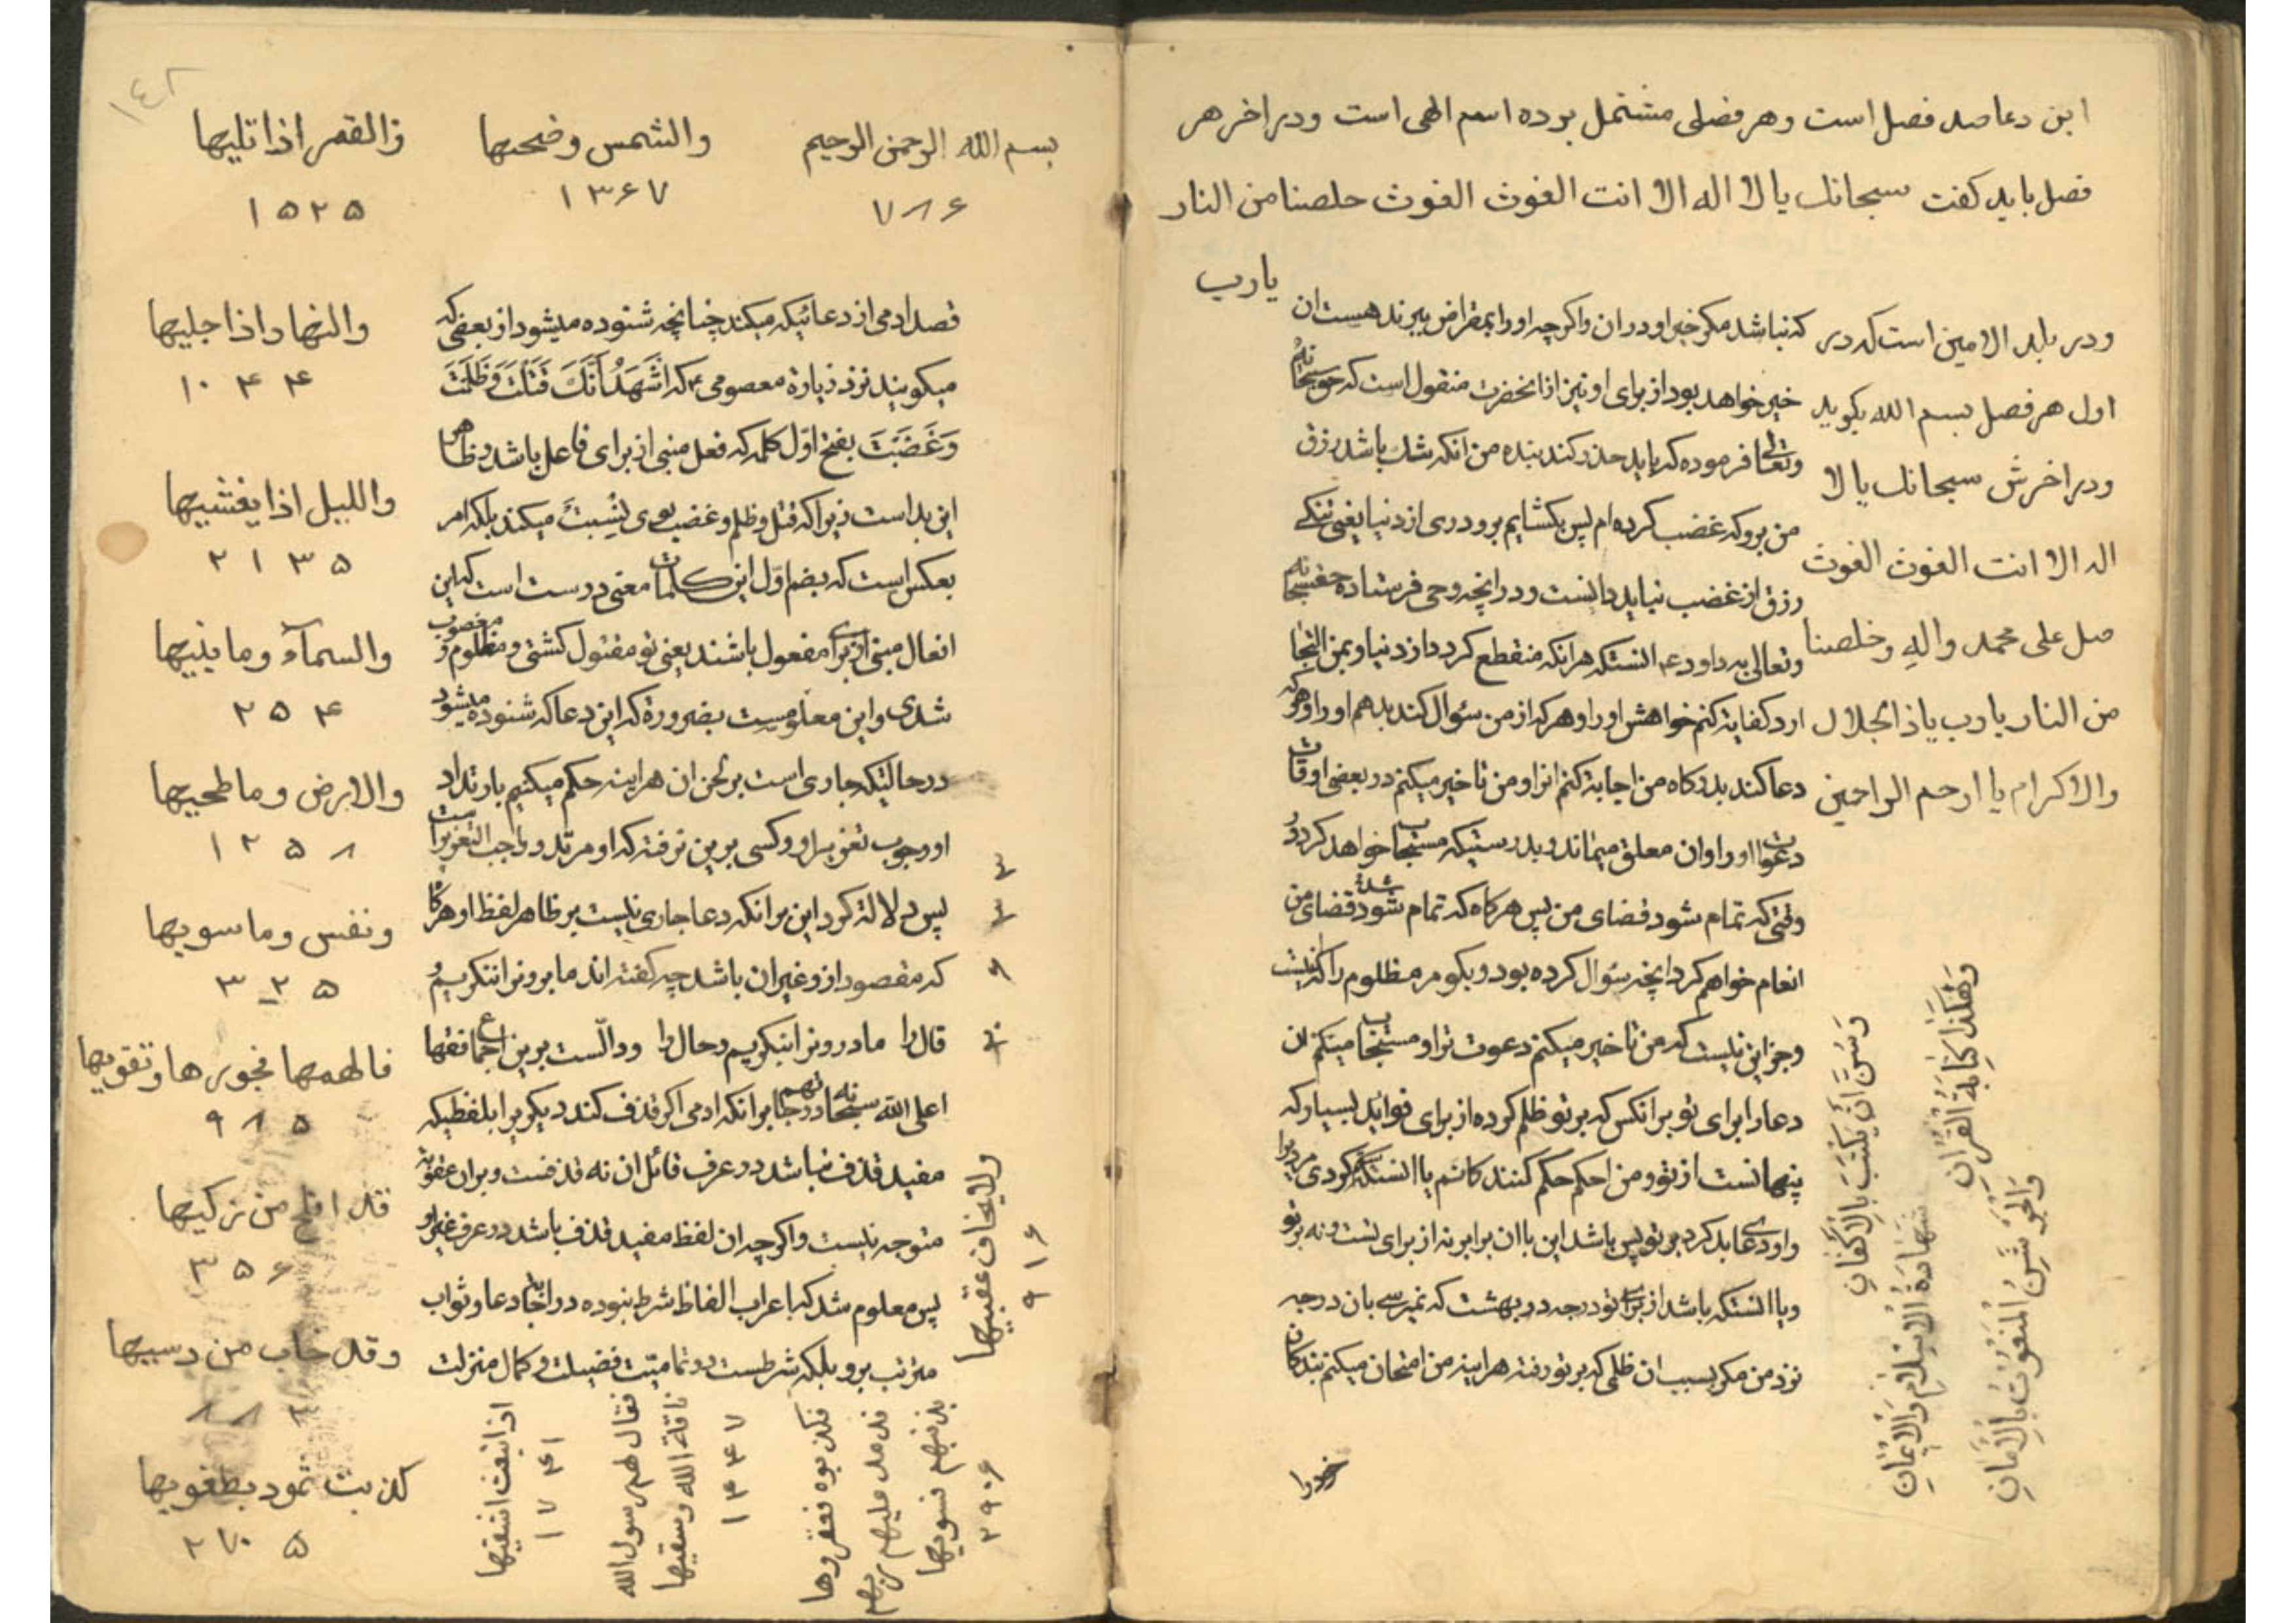 این دعا صد فصل است وهر فصلی مشتمل بر ده اسم الهی است ودر اخر هر
فصل باید کفت سبحانك یا لا اله الا انت الغوث الغوث خلصنا من النار
یا رب
ودر بلد الامین است که در
اول هر فصل بسم الله بکوید
ودر اخرش سبحانك یا لا
اله الا انت الغوث الغوث
صل علی محمد واله وخلصنا
من النار یا رب یا ذا الجلال
والاکرام یا ارحم الراحمین
که نباشد مکر خیر او در ان واکرچه او را بمقراض ببرند هست ان
خیر خواهد بود از برای او نیز از انحضرت منقول است که حق سبحانه
وتعالی فرموده که باید حذر کند بنده من انکه شك باشد رزق
من برو که غضب کرده ام پس بکشایم برو دری از دنیا یعنی تنکی
رزق از غضب نباید دانست ودر انچه وحی فرستاده حق سبحانه
وتعالی به داود ع انستکه هر انکه منقطع کردد از دنیا وبمن التجا
ارد کفایة کنم خواهش او را وهر که از من سؤال کند بدهم او را وهر که
دعا کند بدرکاه من اجابة کنم انرا ومن تاخیر میکنم در بعضی اوقات
دعوات او را وان معلق میماند وبدرستیکه مستجاب خواهد کردد در
وقتی که تمام شود قضای من پس هرکاه که تمام شود قضای من
انعام خواهم کرد انچه سؤال کرده بود وبکو مر مظلوم را که نیست
وجز این نیست که من تاخیر میکنم دعوت ترا ومستجاب میکنم ان
دعا را برای تو بر انکس که بر تو ظلم کرده از برای فواید بسیار که
پنهانست از تو ومن احکم حکم کنندکانم یا انستکه تو کردی مردیرا
واو دعای بد کرد بر تو پس باشد این با ان برابر نه از برای تست ونه بر تو
ویا انستکه باشد از برای تو درجه در بهشت که نمیرسی بان درجه
نزد من مکر بسبب ان ظلمی که بر تو رفته هر اینه من امتحان میکنم بندکانرا
وَسُنَّ اَنْ یُکْتَبَ بِالْاَکْفَانِ
شَهَادَةُ الْاِسْلَامِ وَالْاِیمَانِ
وَهٰکَذَا کِتَابَةُ الْقُرْاٰنِ
وَالْجَوْشَنُ الْمَنْعُوْتُ بِالْاَمَانِ
خود را
١٤٢
بسم الله الرحمن الرحیم
۷۸۶
والشمس وضحیها
۱۳۶۷
والقمر اذا تلیها
۱۵۲۵
والنهار اذا جلیها
۱۰۴۴
واللیل اذا یغشیها
۲۱۳۵
والسمآء وما بنیها
۲۵۴
والارض وما طحیها
۱۲۵۸
ونفس وما سویها
۳۲۵
فالهمها فجورها وتقویها
۹۸۵
قد افلح من زکیها
۳۵۶
وقد خاب من دسیها
کذبت ثمود بطغویها
۲۷۰۵
قصد ادمی از دعائیکه میکند چنانچه شنوده میشود از بعضی که
میکویند نزد زیارة معصومی ع که اَشْهَدُ اَنَّكَ قَتَلْتَ وَظَلَمْتَ
وَغَصَبْتَ بفتح اول کلمه که فعل مبنی از برای فاعل باشد وظاهر
این بد است زیرا که قتل وظلم وغضب بوی نسبت میکند بلکه امر
بعکس است که بضم اول این کلمات معنی درست است که این
افعال مبنی از برای مفعول باشند یعنی تو مقتول کشتی ومظلوم ومغصوب
شدی واین معلومست بضرورة که این دعا که شنوده میشود
در حالتیکه جاری است بر لحن ان هر اینه حکم میکنیم بارتداد
او ووجوب تعزیر او وکسی برین نرفته که او مرتد و واجب التعزیر است
پس دلالة کرد این بر انکه دعا جاری نیست بر ظاهر لفظ او هر کاه
که مقصود ازو غیر ان باشد چه کفته اند ما برونرا ننکریم و
قال را ما درونرا بنکریم وحال را ودالّست برین اجماع فقها
اعلی الله سبحانه درجاتهم بر انکه ادمی اکر قذف کند دیکریرا بلفظیکه
مفید قذف نباشد در عرف قائل ان نه قذفست وبران عقوبة
متوجه نیست واکرچه ان لفظ مفید قذف باشد در عرف غیر او
پس معلوم شد که اعراب الفاظ شرط نبوده در اجابة دعا وثواب
مترتب برو بلکه شرطست در تمامیّت فضیلت وکمال منزلت
اذ انبعث اشقیها
۱۷۴۱
فقال لهم رسول الله
ناقة الله وسقیها
۱۴۴۷
فکذبوه فعقروها
فدمدم علیهم ربهم
بذنبهم فسویها
۲۹۰۶
ولا یخاف عقبیها
۹۱۶